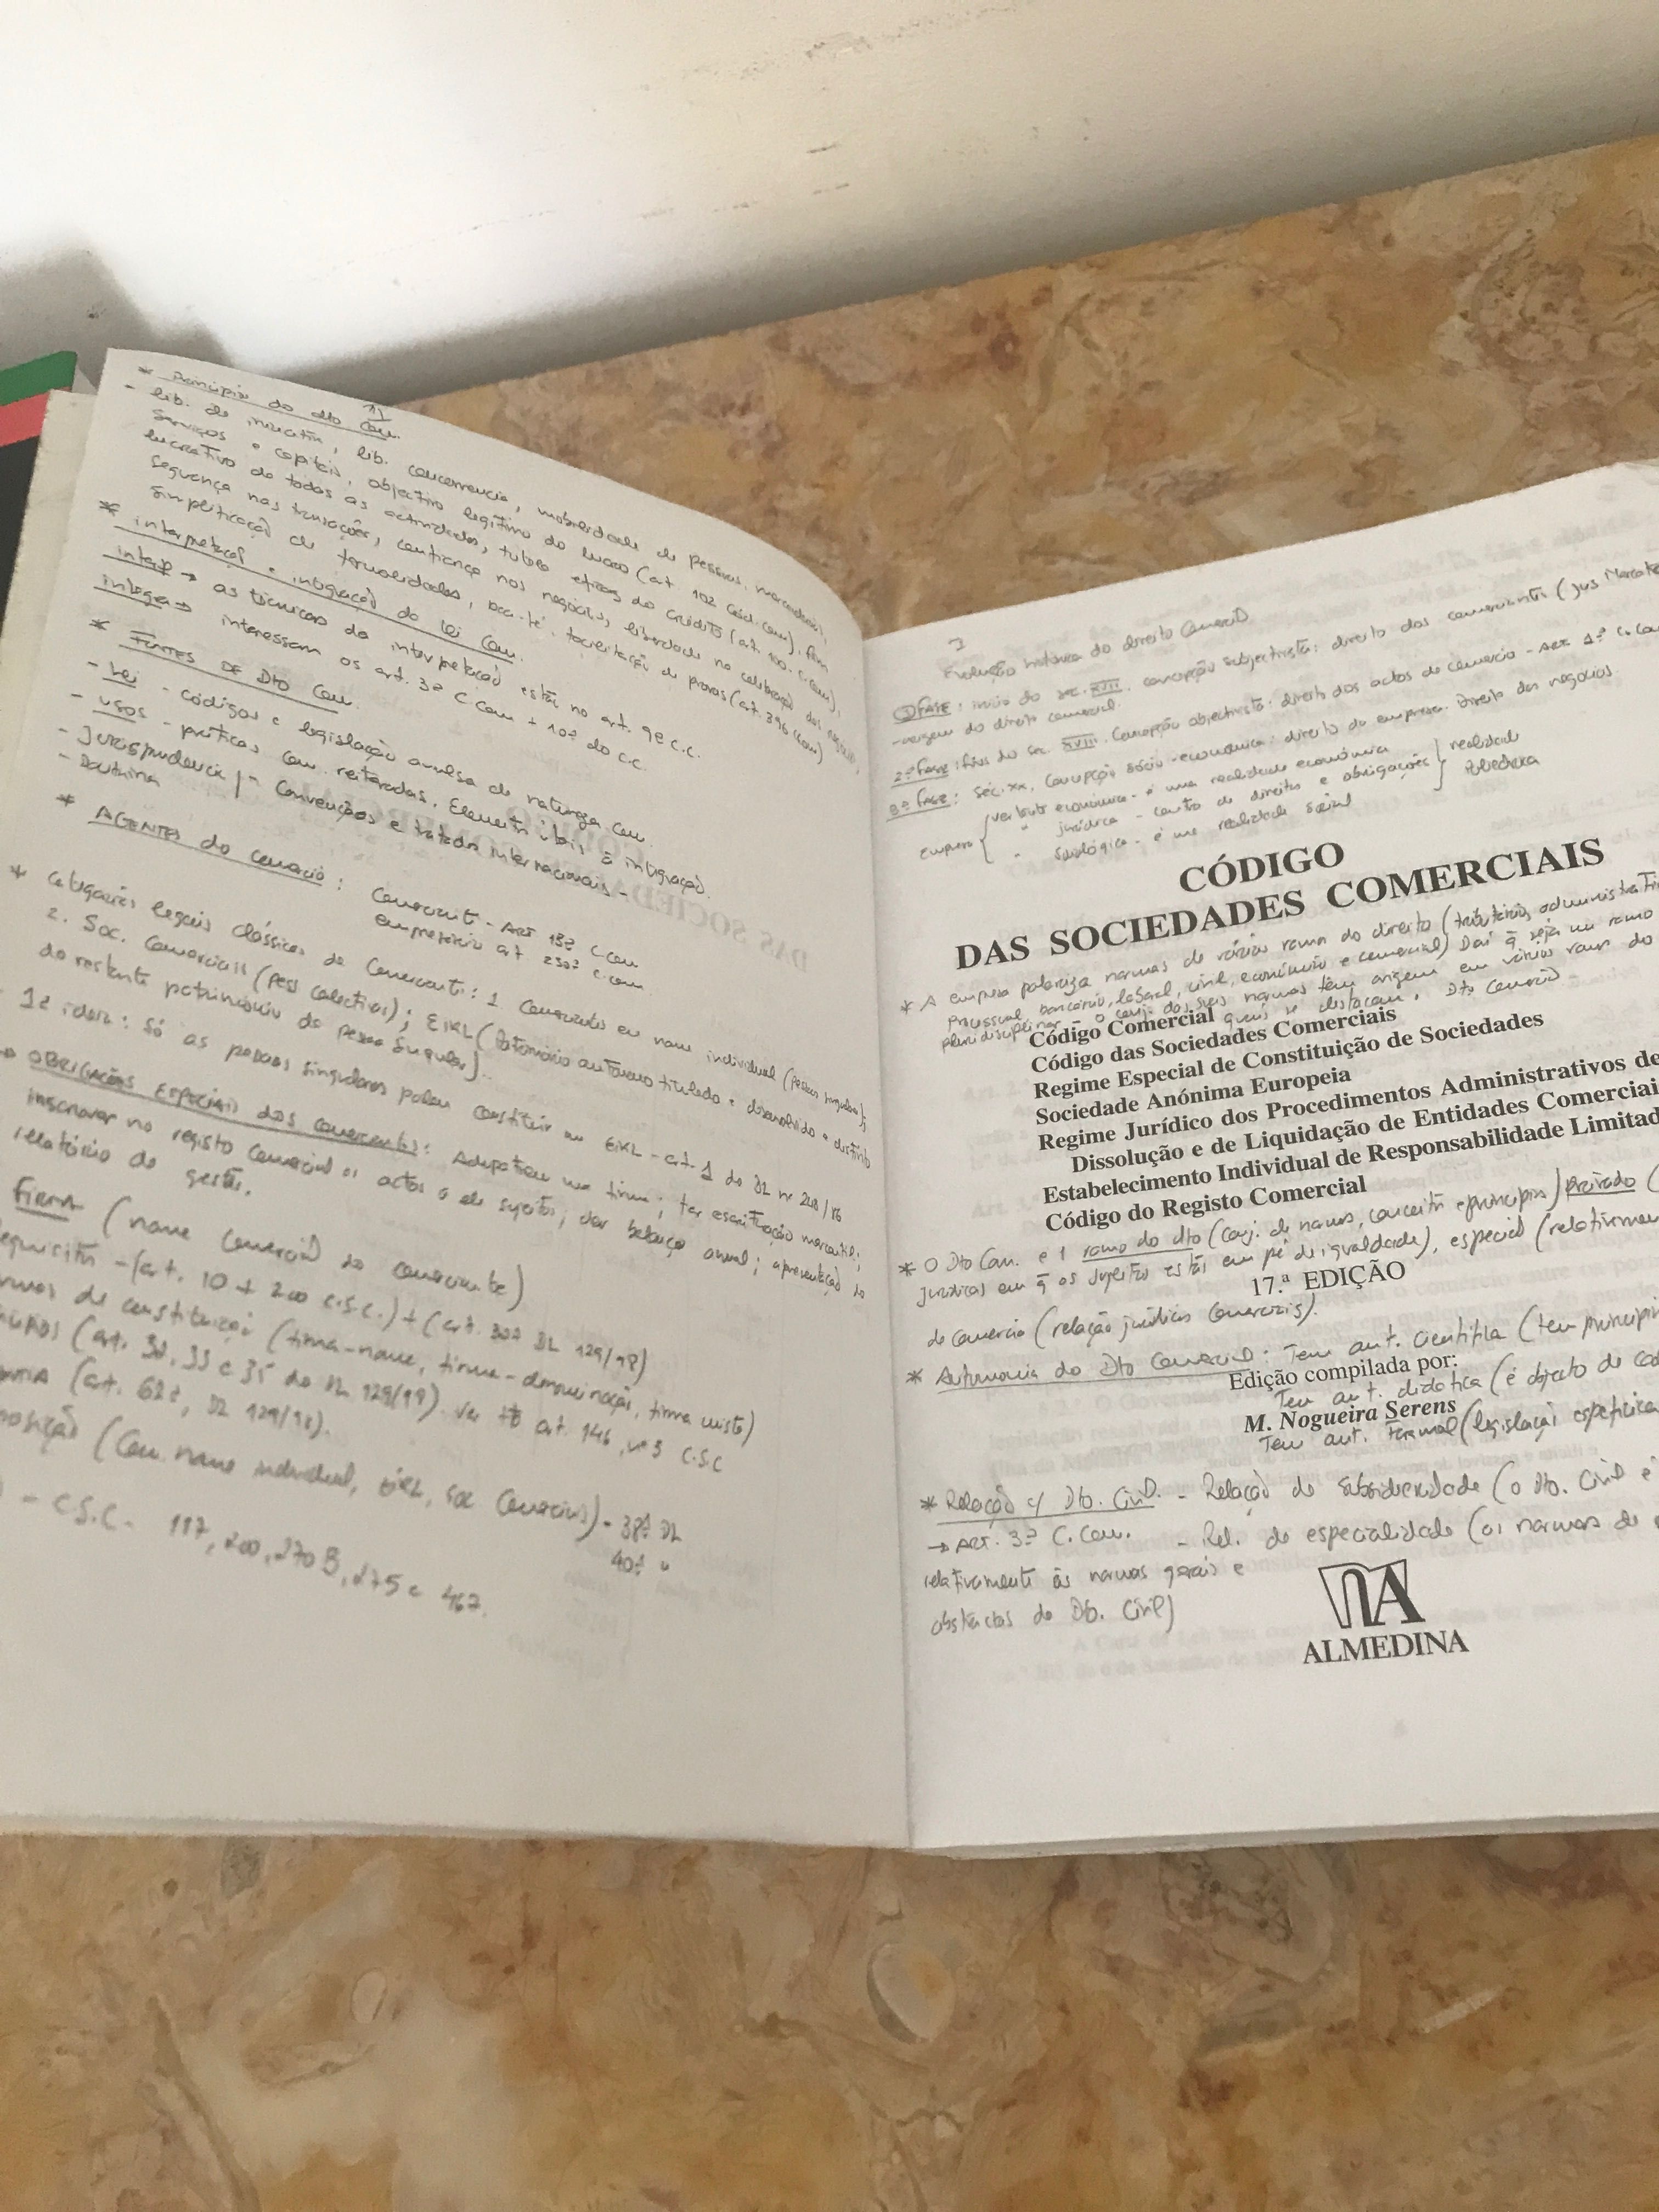 II
* Princípios do dto Com.
- lib. de iniciativa, lib. concorrencia, mobilidade de pessoas, mercadorias,
serviços e capitais, objectivo legítimo do lucro (art 102 Cód. Com), fim
lucrativo de todas as actividades, tutela eficaz do crédito (art. 100. C. Com),
segurança nas transações, confiança nos negócios, liberdade na celebração dos
simplificação de formalidades, boa-fé, facilitação de provas (art. 396 Com)
* interpretaçã e integração da lei Com.
interp → as técnicas da interpretação estão no art. 9º C.C.
integra → interessam os art. 3º C Com + 10º do C.C.
* FONTES DE Dto Com.
- Lei - códigos e legislação avulsa de natureza Com.
- usos - práticas Com. reiteradas. Elemento útais à integração.
- Jurisprudencia / - Convenções e tratados internacionais -
- Doutrina
* AGENTES do comercio : Comerciante - Art 13º C Com
empresário art 230º C. Com
* categorias legais clássicas de Comerciante : 1 Comerciante em nome individual (pessoa singular);
2. Soc. Comerciais (pess colectivas); EIRL (Património autónomo titulado e distinto
do restante património da pessoa singular).
1ª ideia : Só as pessoas singulares podem constituir um EIRL - art. 1 do DL nº 248/86
OBRIGAÇÕES ESPECIAIS dos comerciantes : Adoptarem uma firma; ter escrituração mercantil;
inscrever no registo Comercial os actos a ele sujeitos; dar balanço anual; apresentação do
relatório de gestão.
FIRMA (nome Comercial do comerciante)
requisitos - (art. 10 + 200 C.S.C.) + (art. 32º DL 129/98)
de constituição (firma-nome, firma-denominação, firma mista)
(art. 32, 33 e 35 do DL 129/98). Ver tb art. 146, nº 5 C.S.C
(art. 62º, DL 129/98).
(Com. nome individual, EIRL, Soc Comerciais) - 38º DL
40º "
- C.S.C - 117, 200, 270 B, 275 e 467.
I
Evolução histórica do direito Comercial
1ª FASE : início do sec. XVII. concepção subjectivista: direito dos comerciantes (Jus
- origem do direito comercial.
2ª FASE : fins do sec. XVIII. Concepção objectivista: direito dos actos de comercio - Art 1º C. Com
3ª FASE : séc. XX, Concepção sócio-economica: direito da empresa. Direito dos negócios.
empresa { vertente económica - é uma realidade económica } realidade
" jurídica - centro de direitos e obrigações
" sociológica - é uma realidade social
CÓDIGO
DAS SOCIEDADES COMERCIAIS
* A empresa polariza normas de vários ramos do direito (tributário, administrativo
Processual bancário, laboral, civil, económico e comercial) Daí q seja um ramo
pluridisciplinar - o conj. das suas normas têm origem em vários ramos do
quais se destacam, Dto Comercial
Código Comercial
Código das Sociedades Comerciais
Regime Especial de Constituição de Sociedades
Sociedade Anónima Europeia
Regime Jurídico dos Procedimentos Administrativos de
Dissolução e de Liquidação de Entidades Comerciais
Estabelecimento Individual de Responsabilidade Limitada
Código do Registo Comercial
* O Dto Com. é 1 ramo do dto (conj. de normas, conceitos e princípios) Privado (
jurídicas em q os sujeitos estão em pé de igualdade), especial (relativamente
17.ª EDIÇÃO
do comercio (relação jurídicas Comerciais).
* Autonomia do Dto Comercial : Tem aut. científica (tem princípios
Edição compilada por:
Tem aut. didática (é objecto de
M. Nogueira Serens
Tem aut. formal (legislaçã específica
* Relação c/ Dto. Civil. - Relação de subsidiaridade (o Dto. Civil é
→ Art. 3º C. Com. - Rel. de especialidade (as normas de
relativamente às normas gerais e
abstractas do Dto. Civil)
ALMEDINA